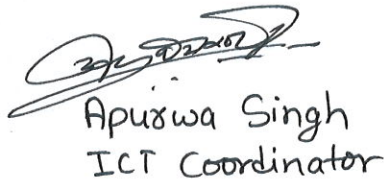 Apurwa Singh
ICT Coordinator